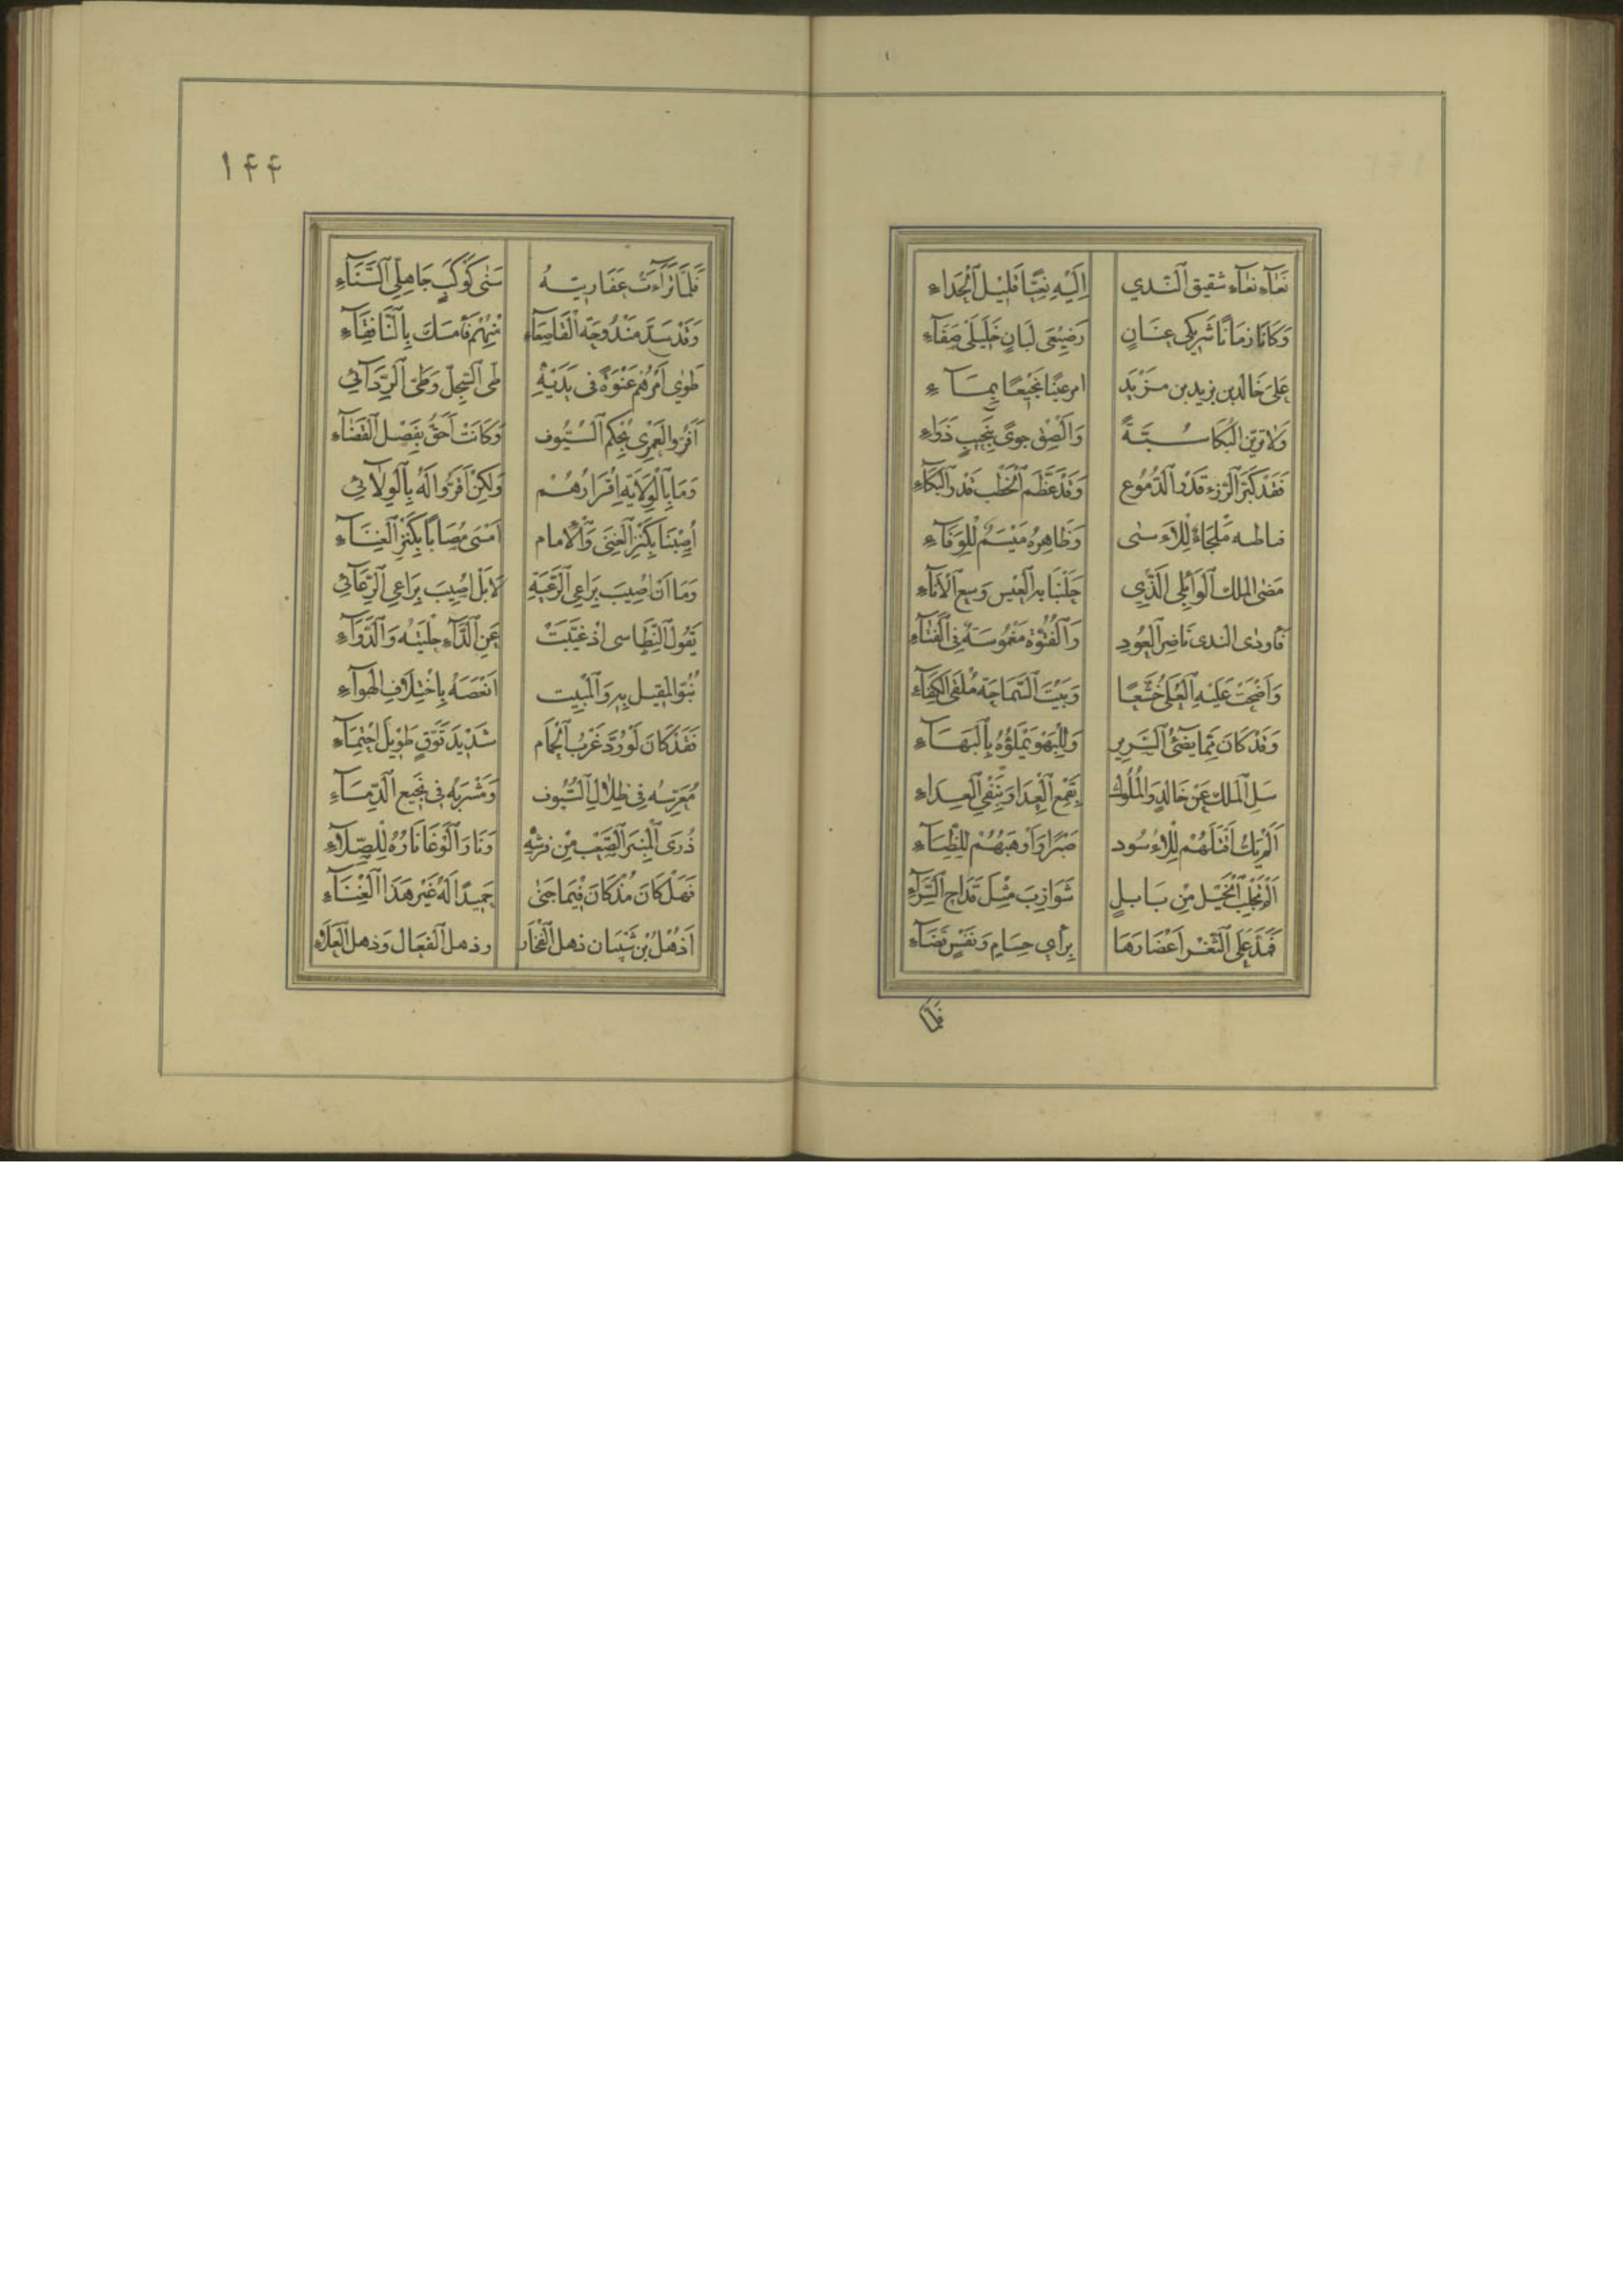 نَعَآءِ نَعَآءِ شقيق اَلنَّدي اِلَيْهِ نَعِيًّا قَلِيْلَ اَلْجَدَاءِ
وَكَانَا زمَانًا شَرِيكَى عِنَانٍ رَضِيْعَى لَبَانٍ خَلِيْلَى صَفَآءِ
عَلىَ خَالد بن يزيد بن مَزْيَد امر عَيْنًا نَجِيْعًا بِمَآءِ
وَلا تَرَيَنَّ البُكَا سُبَّةً وَاَلْصِقْ جوىً بِنَجِيبٍ ذَوَاءِ
فَقَدْ كَبَّرَ اَلرُّزءِ قَدْرَ اَلدُّمُوع وَقَدْ عَظَّمَ اَلْخَطْب قَدر اَلبُكَآءِ
فباطنه مَلْجَاءٌ لِلْاَءسٰى وَظَاهِرُهُ مَيْسَمٌ لِلْوَفَآءِ
مَضَى الملك اَلوَائِلى اَلَّذِي حَلَبْنَا بِهِ اَلْعَيْش وَسِع اَلْاَنَآءِ
فَأودَى الندى نَاضِرَ اَلْعُودِ وَاَلْفُتُوَّة مَغْمُوسَةً فِى اَلْفَتَآءِ
وَاَضْحَتْ عَلَيْهِ اَلْعُلَى خُشَّعًا وَبَيْتُ اَلسَّمَاحَة مُلْقَى اَلْكِفَآءِ
وَقَدْ كَانَ مِمَّا يضَئُ اَلسَّرِير وَاَلْبَهْوَ يَمْلَؤُهُ بِاَلْبَهَآءِ
سَلِ اَلْمُلكَ عَنْ خَالِدٍ وَالْمُلُوك بِقَمْعِ اَلْعِدَا وَبِنَفْيِ اَلْعِدَاءِ
اَلَمْ يَكُ اَقْتَلَهُمْ لِلْاُسُود صَبْرًا وَاَوْهَبَهُمْ لِلظِّبَآءِ
اَلَمْ يَجْلِبِ اَلْخَيْلَ مِنْ بَابلٍ شَوَازِبَ مِثْلَ قدَاحِ اَلسِّرَآءِ
فَمَدَّ عَلَى اَلثَّغْر اَعْصَارَهَا بِرأى حسَامٍ وَنَفْسٍ فَضَآءِ
فلمّا
١۴۴
فَلَمَّا تَرَآءَتْ عَفَارِيْتهُ سَنٰى كَوْكَبٍ جَاهِلِّى اَلسَّنَآءِ
وَقَدْ سَدَّ مَنْدُوحَة اَلْقَاصِعَآءِ مِنْهُمْ فَأَمْسَكَ بِاَلنَّافِقَآءِ
طَوٰى أَمْرَهُم عَنْوَةً فى يَدَيْهِ طَى اَلسِّجِلّ وَطَى اَلرِّدَآئِ
اَقَرُّوا لَعَمْرِى بُحِكْم اَلسُّيُوف وَكَانَتْ أَحَقَّ بِفَصْلِ اَلقَضَآءِ
وَمَا بِاَلْوِلَايَةِ اِقْرَارُهُمْ وَلَكِنْ اَقَرُّوا لَهُ بِاَلْوِلاَئِ
اُصِبْنَا بِكَنْزِ اَلغِنَى وَاَلْاِمام اَمْسَى مُصَابًا بِكَنْزِ اَلْغِنَآءِ
وَمَا اَنْ اُصِيْبَ بِرَاعِى اَلرَّعِيَّةِ لاَ بَلْ اُصِيبَ بِرَاعِى اَلرِّعَآئِ
يَقُولُ اَلنِّطَاسى اذ غَيَّبَتْ عَنِ اَلدَّاءِ حِلْيَتَهُ وَاَلدَّوَاءِ
نُبُوّ المَقِيل بِهِ وَاَلْمَبِيت اَنْعَصَهُ بِاِخْتِلَافِ اَلْهَوآءِ
فَقَدْ كَانَ لَوْ رُدَّ غَرْبُ اَلْحِمَام شَدِيْدَ تَوَّقٍ طَوِيْلَ اِحْتِمَآءِ
مُعَرَّسُه فِى ظِلَالِ اَلسُّيُوف وَمَشْرَبهُ فى نَجَيعِ اَلدِّمَآءِ
ذُرَى اَلْمِنْبَر اَلصَّعْبِ مِنْ فرشِهِ وَنَارُ اَلْوَغَا نَارُهُ لِلصِّلآءِ
فَهَلْ كَانَ مُذْ كَانَ فِيْمَا جَنٰى حَمِيْدًا لَهُ غَيْر هَذَا اَلْغِنَآءِ
اَذُهْلُ بْن شَيْبَان ذهل اَلْفَخَار وذهل اَلفعَال وَذهل اَلْعَلَاءِ